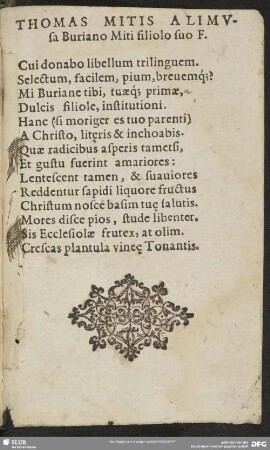 THOMAS MITIS A LIMV-
sa Buriano Miti filiolo suo F.
Cui donabo libellum trilinguem.
Selectum, facilem, pium, breuemq́;?
Mi Buriane tibi, tuæq́; primæ,
Dulcis filiole, institutioni.
Hanc (si moriger es tuo parenti)
A Christo, literis & inchoabis.
Quæ radicibus asperis tametsi,
Et gustu fuerint amariores:
Lentescent tamen, & suauiores
Reddentur sapidi liquore fructus
Christum nosce basim tuę salutis.
Mores disce pios, stude libenter.
Sis Ecclesiolæ frutex, at olim.
Crescas plantula vineę Tonantis.
SLUB
DFG